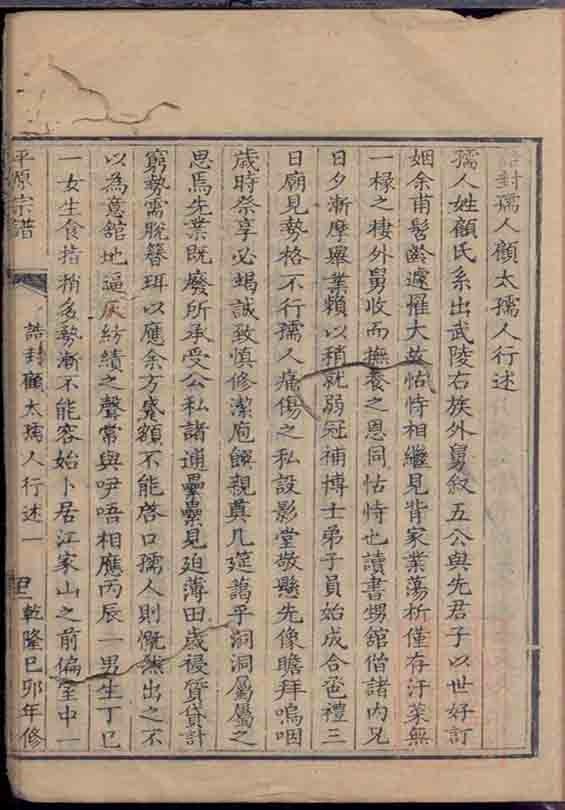 誥封孺人顧太孺人行述
孺人姓顧氏系出武陵右族外舅叙五公與先君子以世好訂
姻余甫髫齡遽罹大故怙恃相繼見背家業蕩析僅存汙萊無
一椽之棲外舅收而撫養之恩同怙恃也讀書甥館偕諸内兄
日夕漸摩舉業賴以稍就弱冠補博士弟子員始成合卺禮三
日廟見勢格不行孺人痛傷之私設影堂敬懸先像瞻拜嗚咽
歲時祭享必竭誠致慎修潔庖饌親奠几筵藹乎洞洞屬屬之
思焉先業既廢所承受公私諸逋壘纍見廹薄田歲祲貸貸計
窮勢需脱簪珥以應余方蹙額不能啓口孺人則慨然出之不
以為意舘地逼仄紡績之聲常與咿唔相應丙辰一男生丁巳
一女生食指稍多勢漸不能容始卜居江家山之前偏室中一
平原宗譜
誥封顧太孺人行述一
乾隆己卯年修